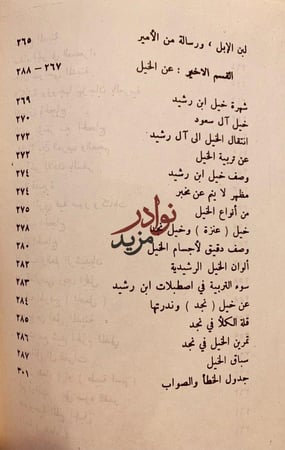 لبن الإبل ، ورسالة من الأمير ٢٦٥
القسم الاخير : عن الخيل ٢٦٧ - ٢٨٨
شهرة خيل ابن رشيد ٢٦٩
خيل آل سعود ٢٧٠
انتقال الخيل الى آل رشيد ٢٧٢
عن تربية الخيل ٢٧٣
وصف خيل ابن رشيد ٢٧٤
مظهر لا ينم عن مخبر ٢٧٤
من أنواع الخيل ٢٧٥
خيل ( عنزة ) وخيل نجد ٢٧٨
وصف دقيق لأجسام الخيل ٢٨٠
ألوان الخيل الرشيدية ٢٨٢
سوء التربية في اصطبلات ابن رشيد ٢٨٣
عن خيل ( نجد ) وندرتها ٢٨٤
قلة الكلأ في نجد ٢٨٥
تمرين الخيل في نجد ٢٨٦
سباق الخيل ٢٨٧
جدول الخطأ والصواب ٣٠١
نوادر
مزيد